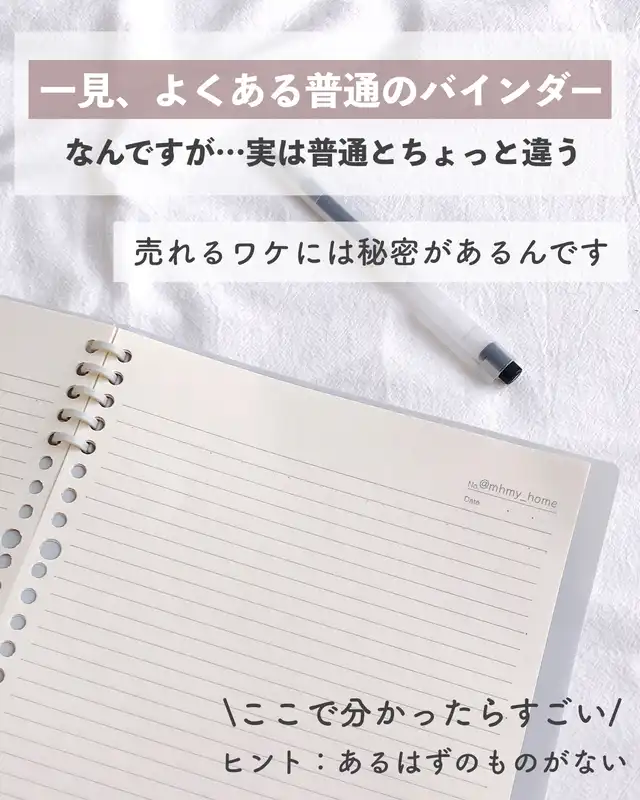 一見、よくある普通のバインダー
なんですが…実は普通とちょっと違う
売れるワケには秘密があるんです
No.
@mhmy_home
Date
\ここで分かったらすごい/
ヒント：あるはずのものがない